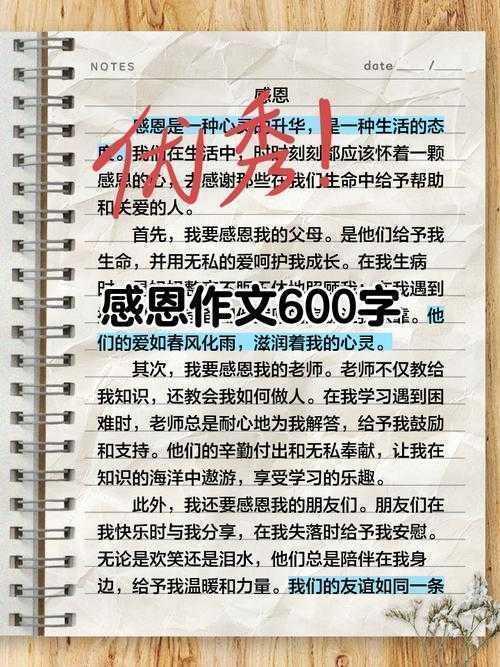 NOTES
date /
感恩
感恩是一种心灵的升华，是一种生活的态
度。我们在生活中，时时刻刻都应该怀着一颗
感恩的心，去感谢那些在我们生命中给予帮助
和关爱的人。
优秀！
首先，我要感恩我的父母。是他们给予我
生命，并用无私的爱呵护我成长。在我生病
感恩作文600字
他
们的爱如春风化雨，滋润着我的心灵。
其次，我要感恩我的老师。老师不仅教给
我知识，还教会我如何做人。在我学习遇到困
难时，老师总是耐心地为我解答，给予我鼓励
和支持。他们的辛勤付出和无私奉献，让我在
知识的海洋中遨游，享受学习的乐趣。
此外，我还要感恩我的朋友们。朋友们在
我快乐时与我分享，在我失落时给予我安慰。
无论是欢笑还是泪水，他们总是陪伴在我身
边，给予我温暖和力量。我们的友谊如同一条